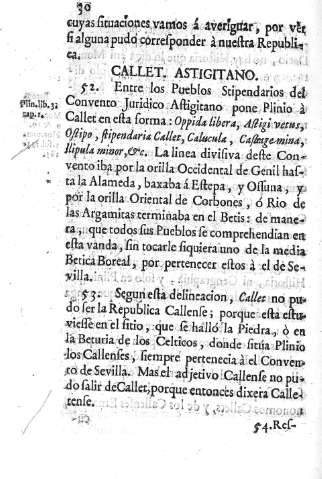 30
cuyas situaciones vamos á averiguar, por ver
si alguna pudo corresponder à nuestra Republi-
ca.
CALLET. ASTIGITANO.
52. Entre los Pueblos Stipendarios del
Plin. lib. 3.
cap. 1.
Convento Juridico Astigitano pone Plinio à
Callet en esta forma: Oppida libera, Astigi vetus,
Ostipo, stipendaria Callet, Calucula, Castrage mina,
Ilipula minor, &c. La linea divisiva deste Con-
vento iba por la orilla Occidental de Genil has-
ta la Alameda, baxaba á Estepa, y Ossuna, y
por la orilla Oriental de Corbones, ó Rio de
las Argamitas terminaba en el Betis: de mane-
ra, que todos sus Pueblos se comprehendian en
esta vanda, sin tocarle siquiera uno de la media
Betica Boreal, por pertenecer estos à el de Se-
villa.
53. Segun esta delineacion, Callet no pu-
do ser la Republica Callense; porque esta estu-
viesse en el sitio, que se halló la Piedra, ò en
la Beturia de los Celticos, donde sitúa Plinio
los Callenses, siempre pertenecia à el Conven-
to de Sevilla. Mas el adjetivo Callense no pu-
do salir de Callet, porque entonces dixera Calle-
tense.
54. Res-